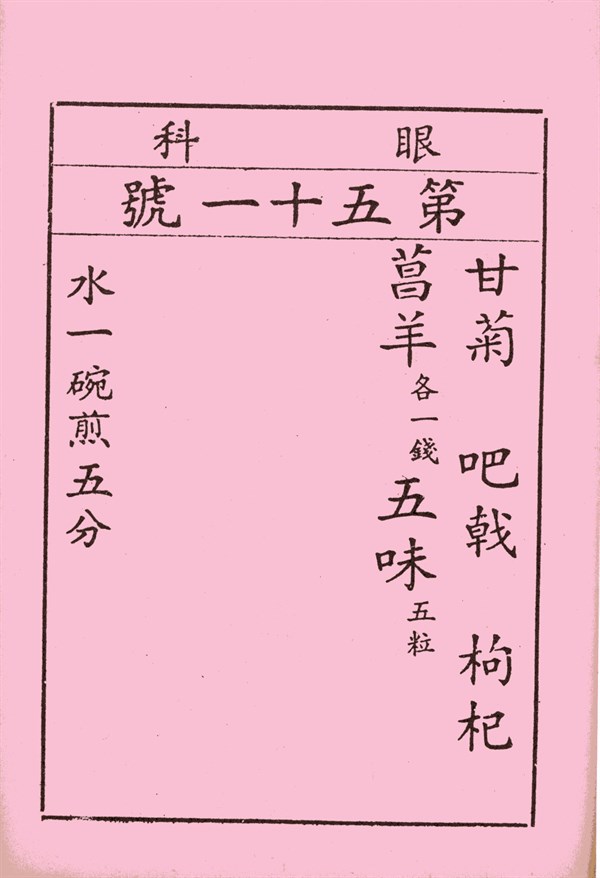 眼科
第五十一號
甘菊 吧戟 枸杞
菖羊各一錢五味五粒
水一碗煎五分